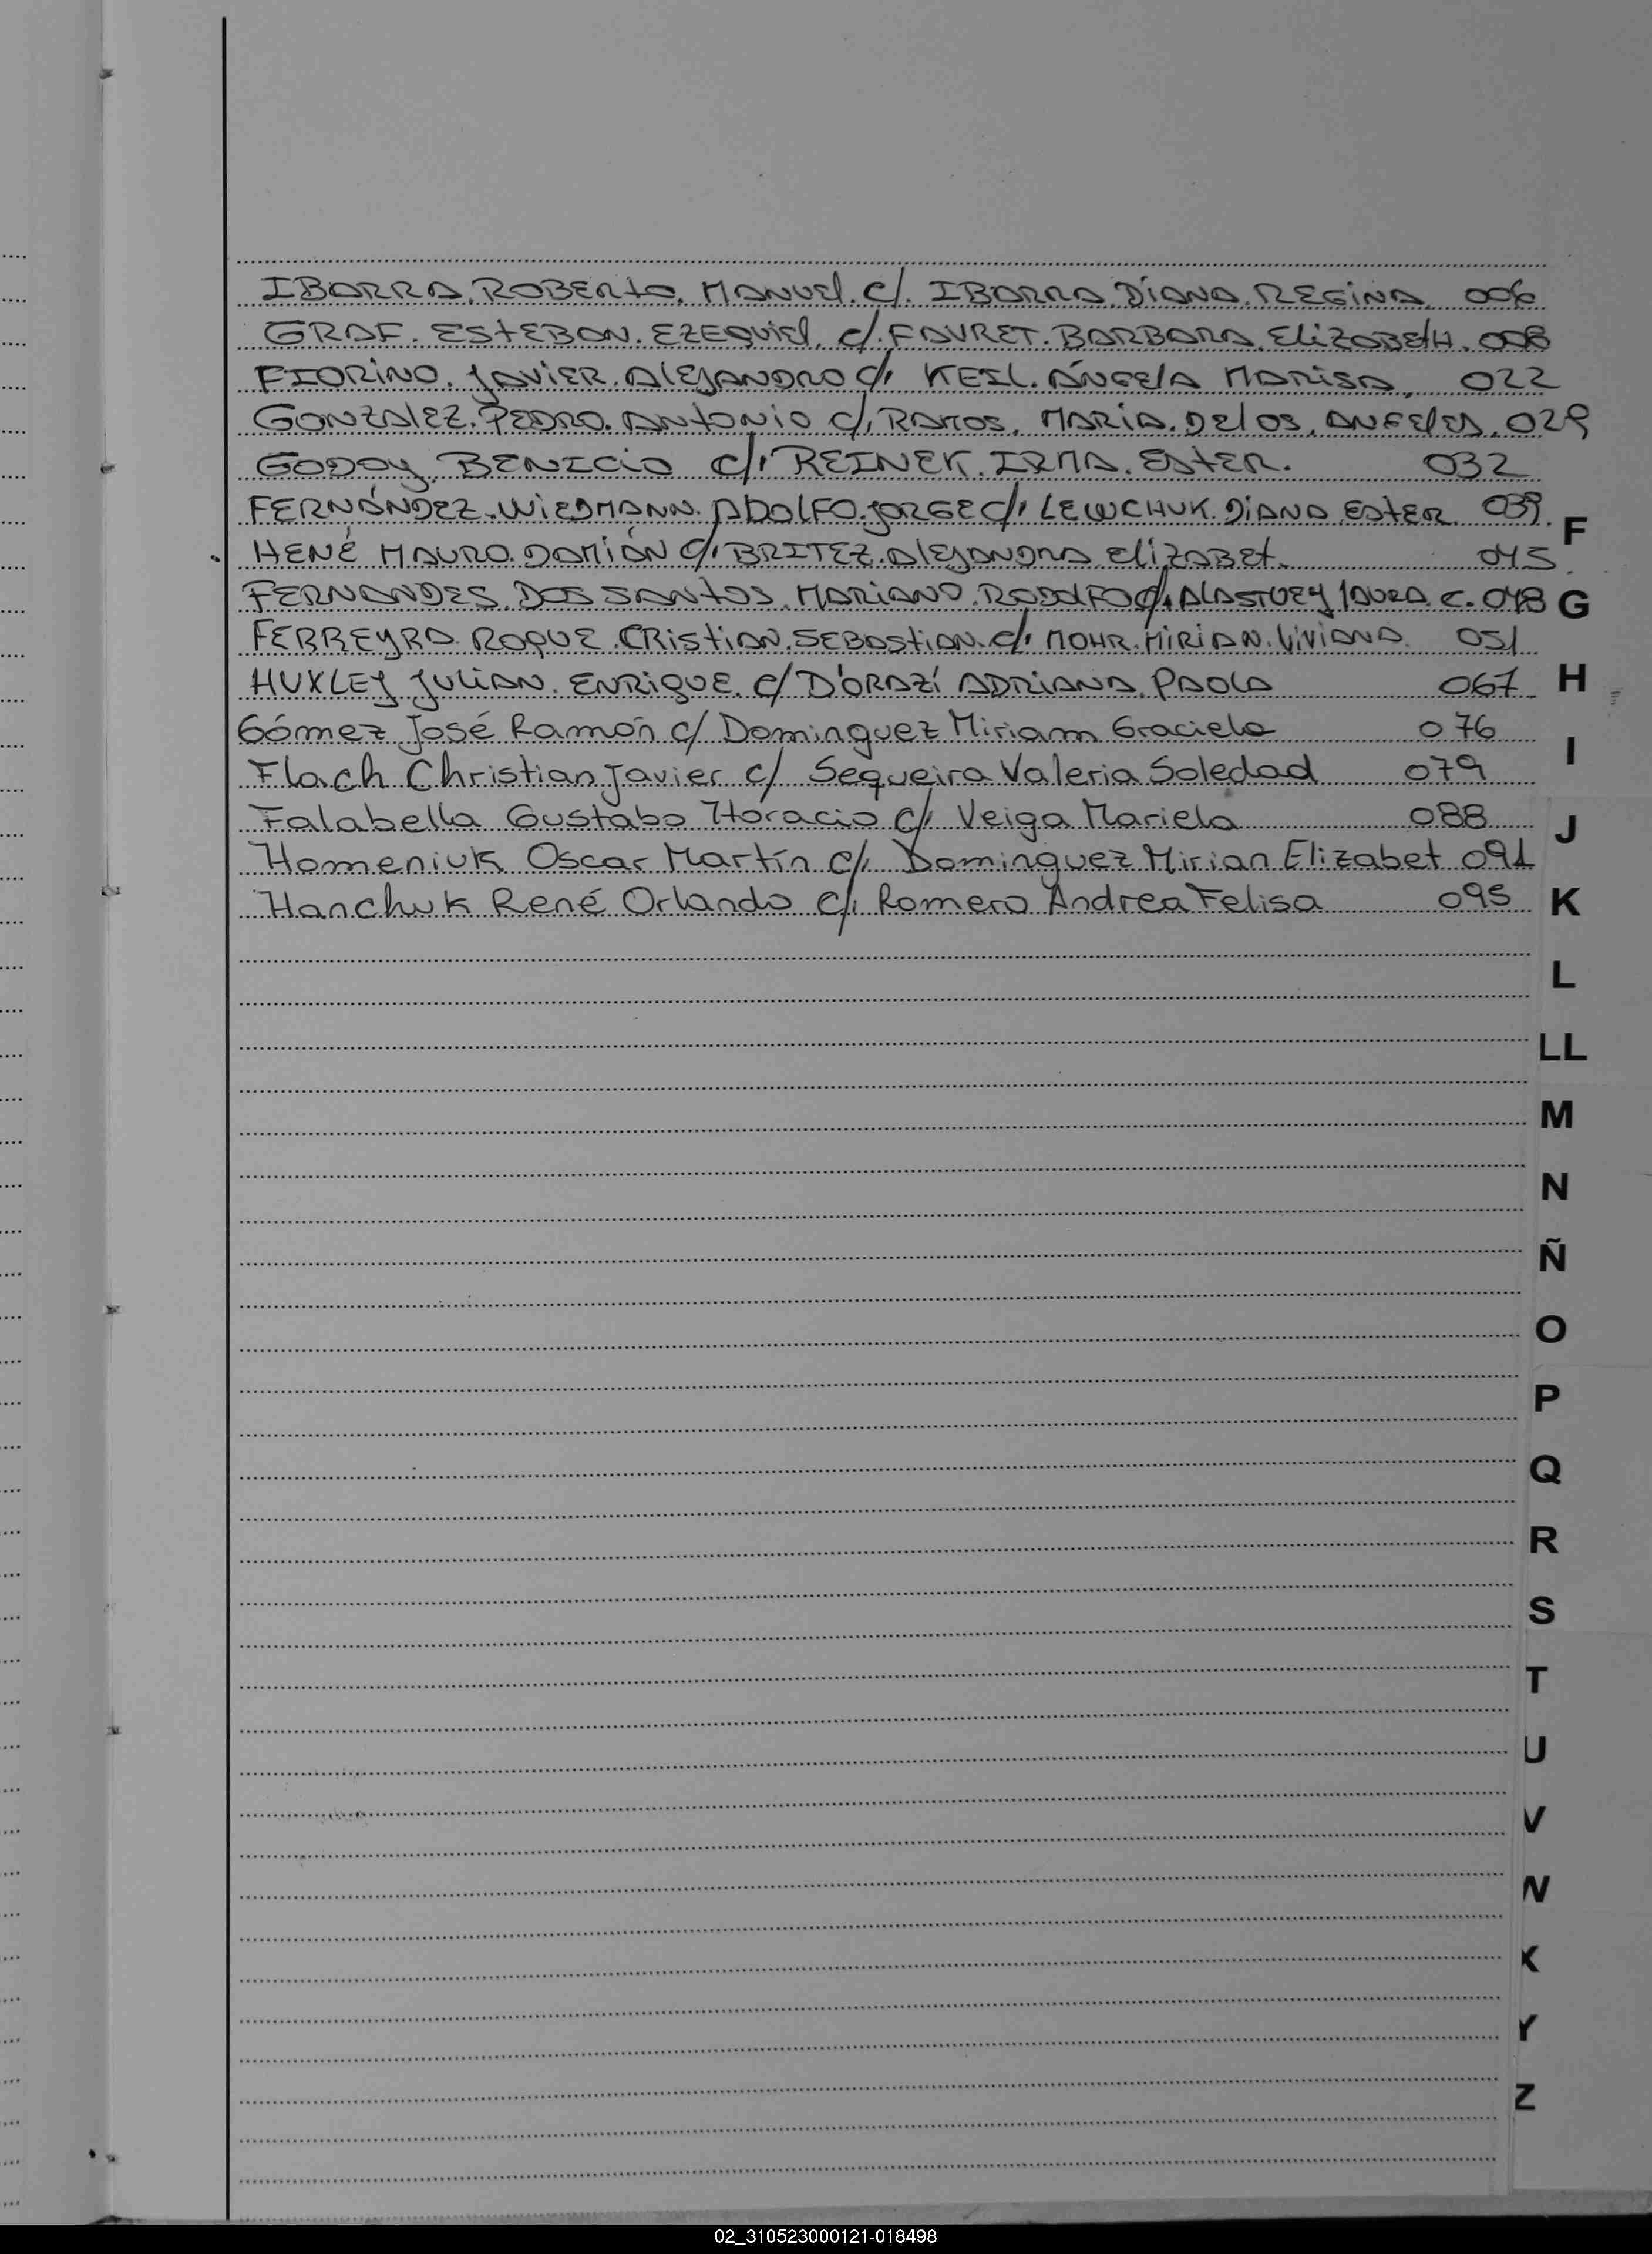 IBARRA, ROBERTO, MANUEL. c/. IBARRA, DIANA, REGINA, 006
GRAF. ESTEBAN. EZEQUIEL, c/. FAVRET. BARBARA, ELIZABETH. 008
FIORINO, JAVIER, ALEJANDRO c/, KEIL. ÁNGELA MARISA, 022
GONZALEZ. PEDRO. ANTONIO c/, RAMOS, MARIA. DE LOS, ANGELES, 029
GODOY, BENICIO c/, REINEK. IRMA. ESTER. 032
FERNÁNDEZ. WIEDMANN. ADOLFO. JORGE c/, LEWCHUK. DIANA ESTER 039.
HENÉ MAURO. DAMIÁN c/, BRITEZ. ALEJANDRA ELIZABET. 045
FERNANDES. DOS SANTOS, MARIANO. RODOLFO c/, ALASTUEY LAURA C. 048
FERREYRA ROQUE. CRISTIAN. SEBASTIAN. c/, MOHR. MIRIAN. VIVIANA. 051
HUXLEY JULIAN. ENRIQUE. c/ D'ORAZÍ ADRIANA, PAOLA 067
Gómez José Ramón c/ Dominguez Miriam Graciela 076
Flach Christian Javier c/ Sequeira Valeria Soledad 079
Falabella Gustabo Horacio c/, Veiga Mariela 088
Homeniuk Oscar Martín c/, Dominguez Mirian Elizabet 091
Hanchuk René Orlando c/, Romero Andrea Felisa 095
F
G
H
I
J
K
L
LL
M
N
Ñ
O
P
Q
R
S
T
U
V
W
X
Y
Z
02_310523000121-018498